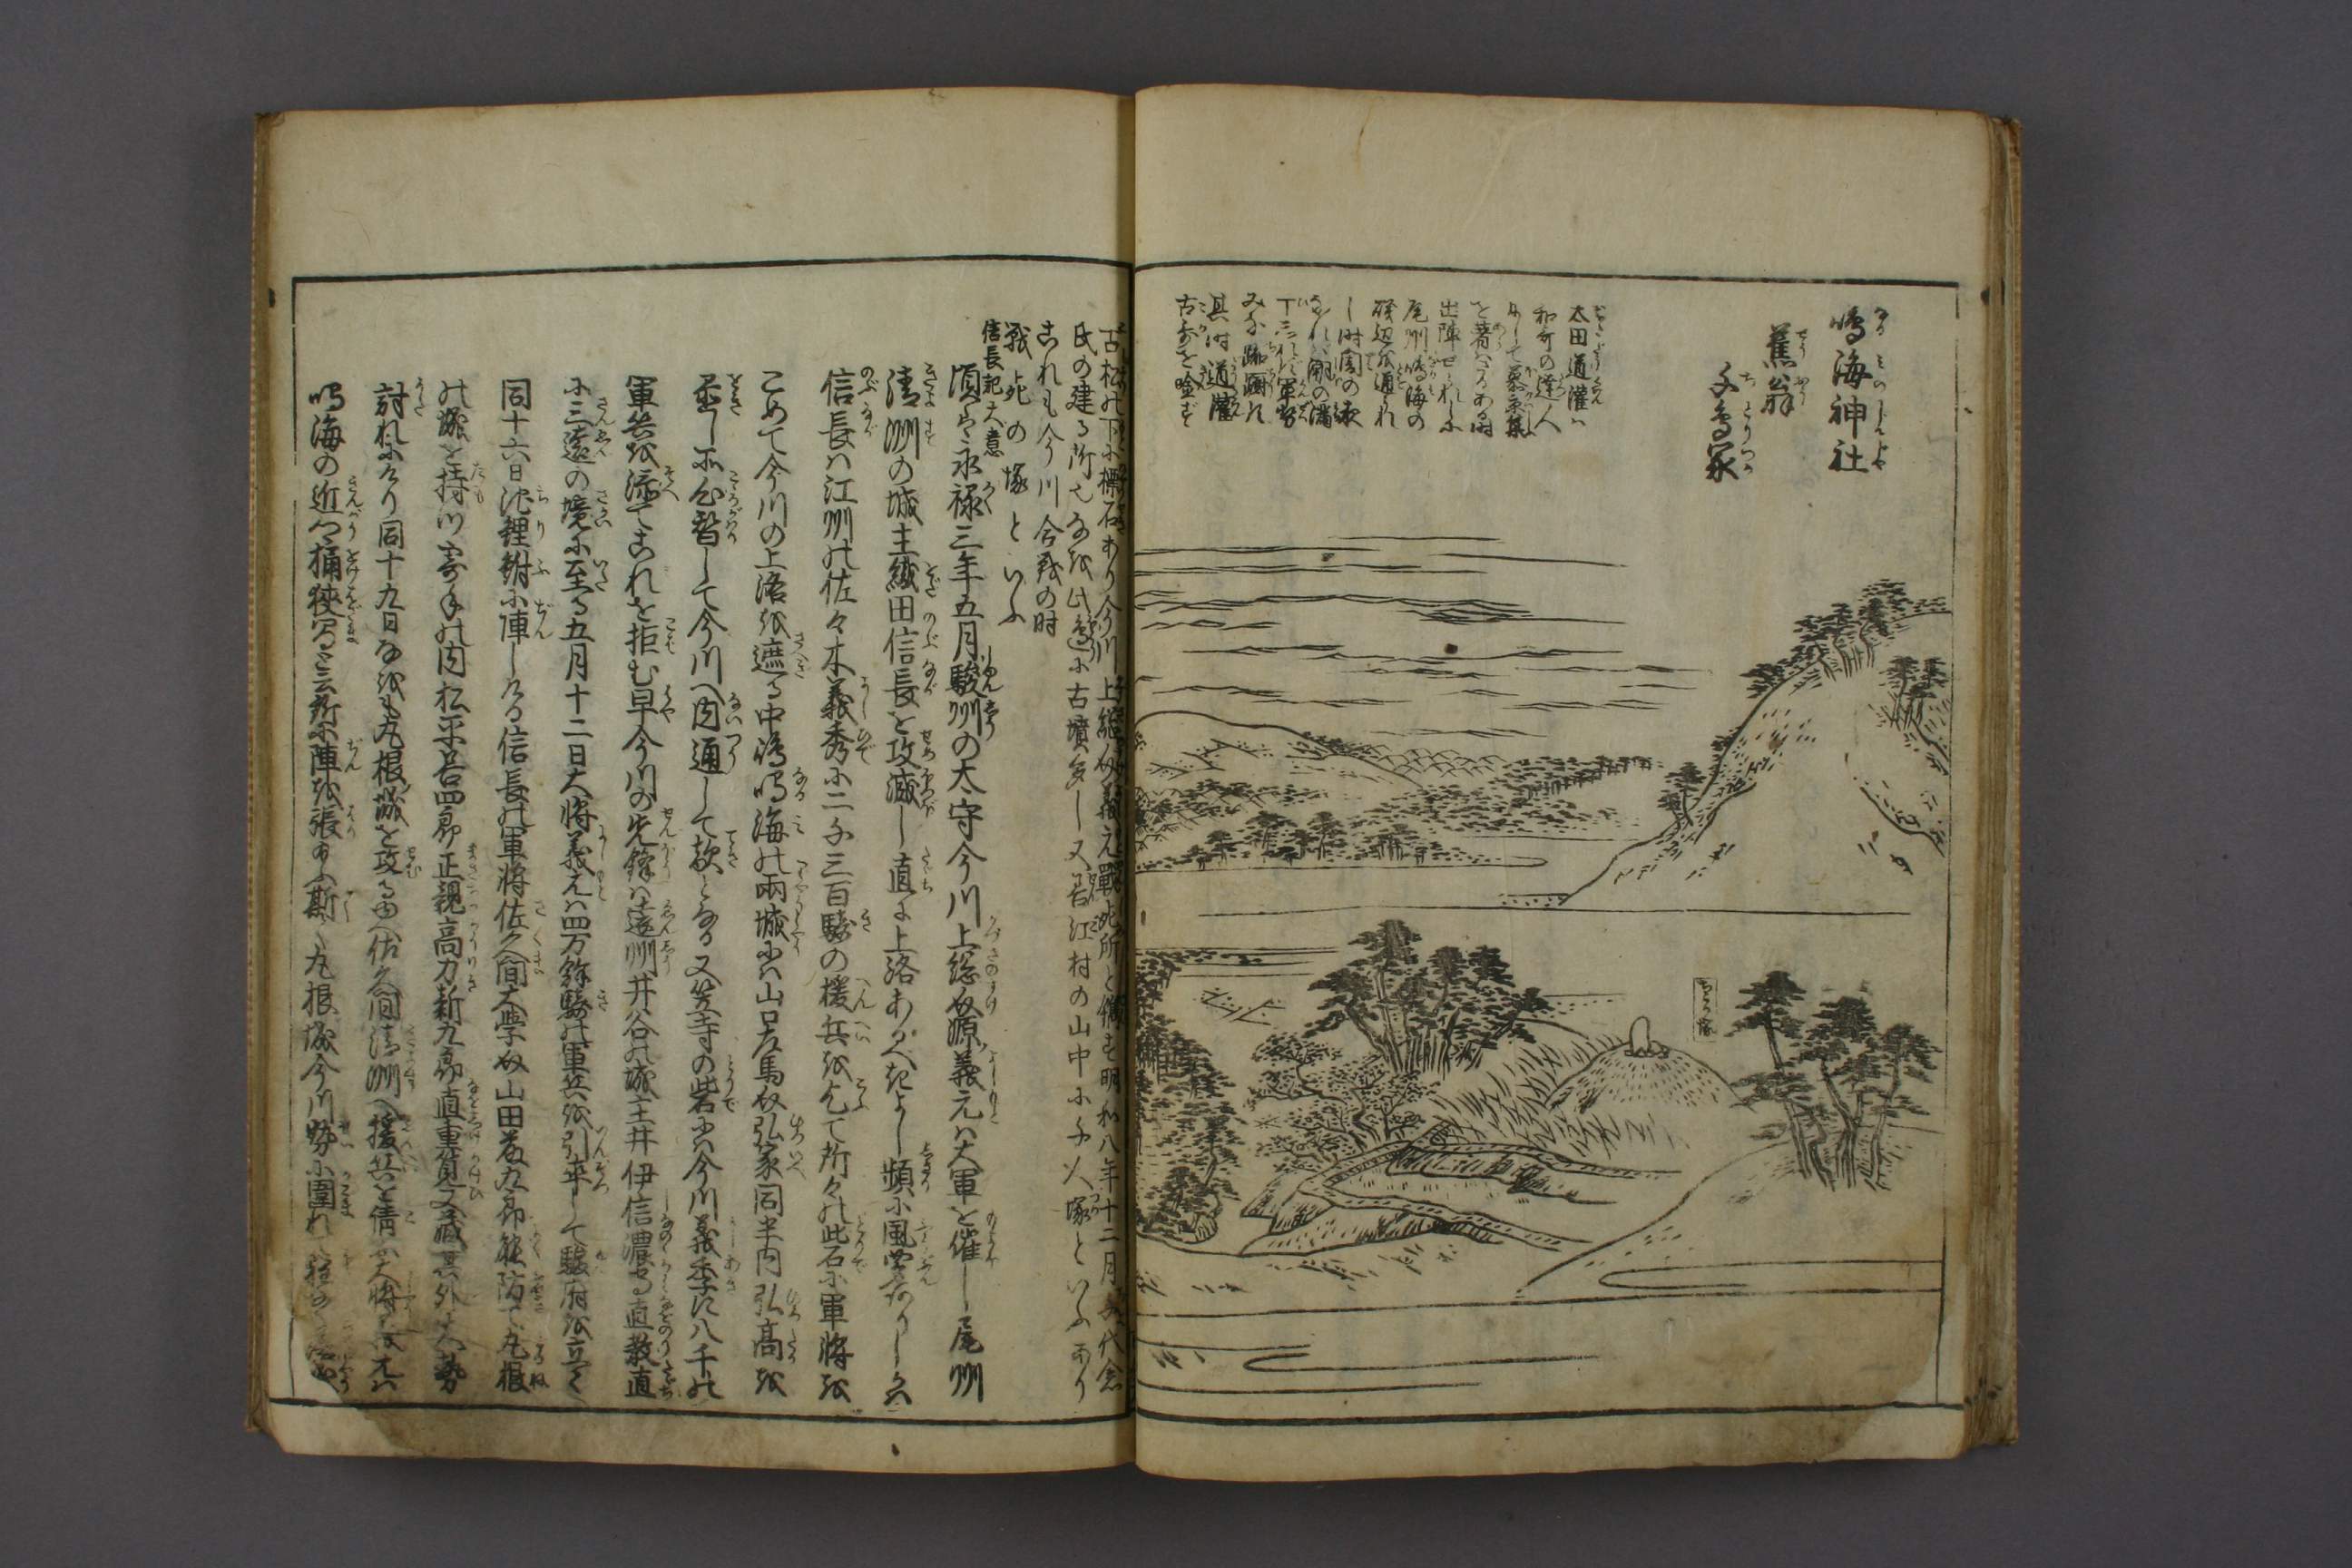 鳴海神社
蕉翁
千鳥塚
太田道灌ハ
和哥の達人
にして慕景集
を著ハさるある時
出陣せられに
尾州鳴海の
磯辺を通られ
し時闇の夜
なれハ潮の満
みな踟躕す
其時道灌
古哥を唫ず
ちとり塚
古松の下に標石あり今川上総介義元戦死所と傍に明和八年十二月
氏の建る所也なを此辺に古墳多し又若江村の山中に千人塚といふあり
これも今川合戦の時
戦死の塚といふ
信長記大意
頃ハ永禄三年五月駿州の太守今川上総介源義元ハ大軍を催し尾州
清洲の城主織田信長を攻滅し直に上洛あるべきよし頻に風聞ありしかハ
信長ハ江州の佐々木義秀に二千三百騎の援兵を乞て所々の砦に軍将を
こめて今川の上洛を遮る中嶋鳴海の両城にハ山口左馬介弘家同半内弘高を
置し所心替して今川へ内通して敵となる又笠寺の砦にハ今川義季に八千の
軍兵を添てこれを拒む早今川の先鋒ハ遠州井谷の城主井伊信濃守直教直
に三遠の境に至る五月十二日大将義元ハ四万餘騎の軍兵を引率して駿府を立て
同十六日池鯉鮒に陣しける信長の軍将佐久間大学介山田藤九郎能防で丸根
の城を持つ寄手の内松平善四郎正親高力新九郎直重筧又蔵其外大勢
討れにけり同十九日なをも丸根城を攻る由へ佐久間清洲へ援兵を倩ふ大将義元ハ
鳴海の近郷桶狭間と云所に陣を張給ふ斯て丸根城今川勢に囲れ